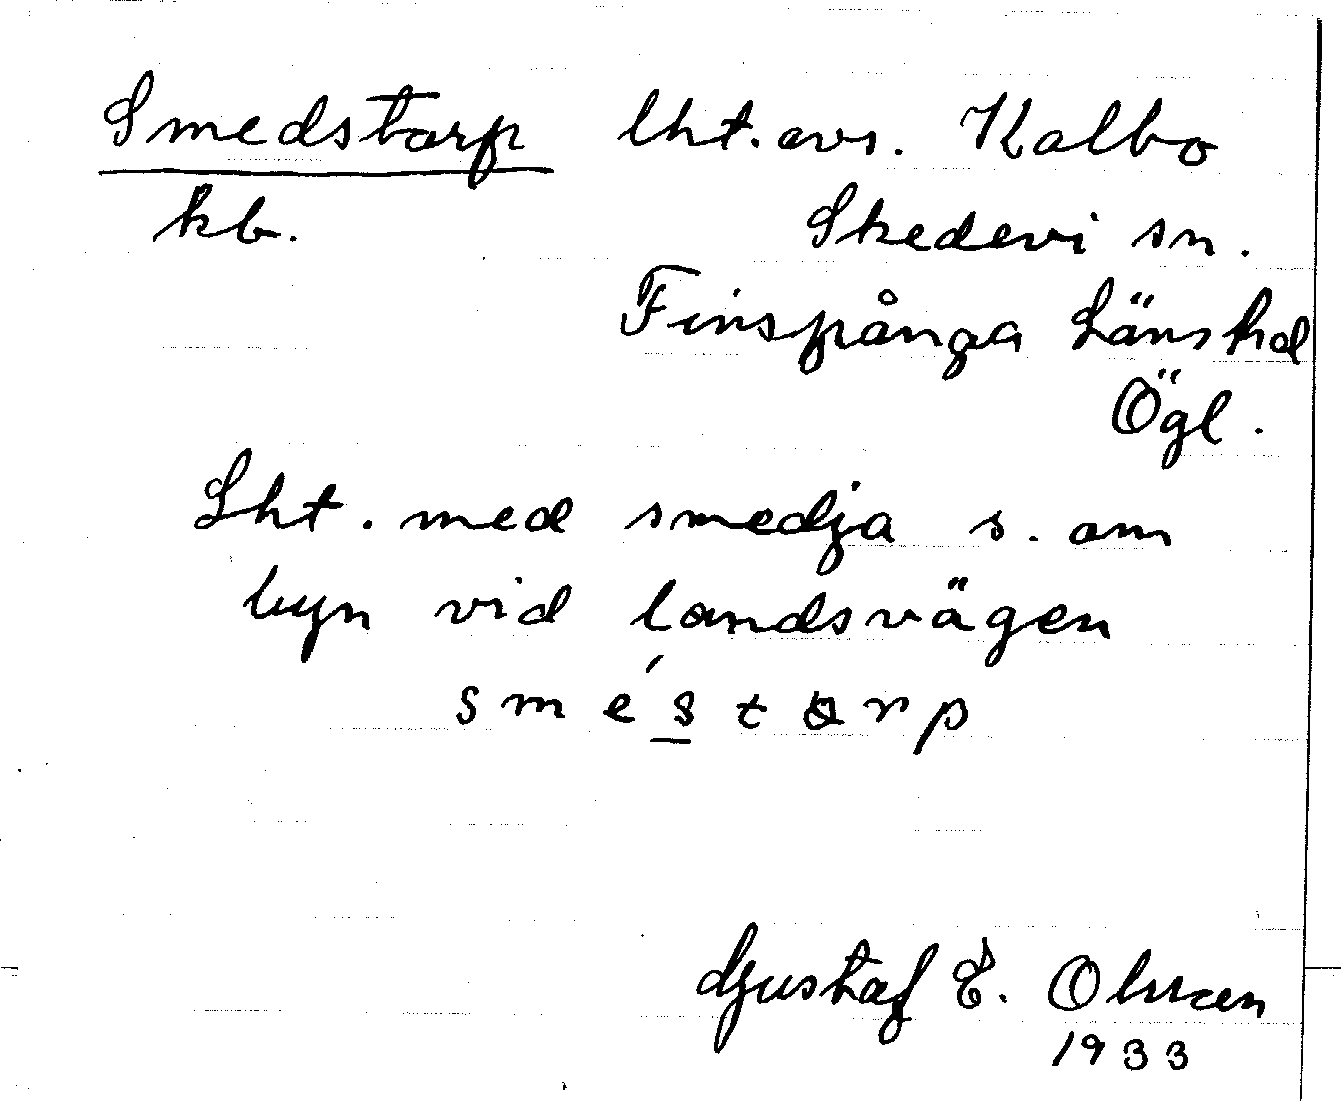 Smedstorp lht. avs. Kalbo
kb. Skedevi sn.
Finspånga Länshd
Ögl.
Lht. med smedja s. om
byn vid landsvägen
smés̲torp
Gustaf E. Olsson
1933